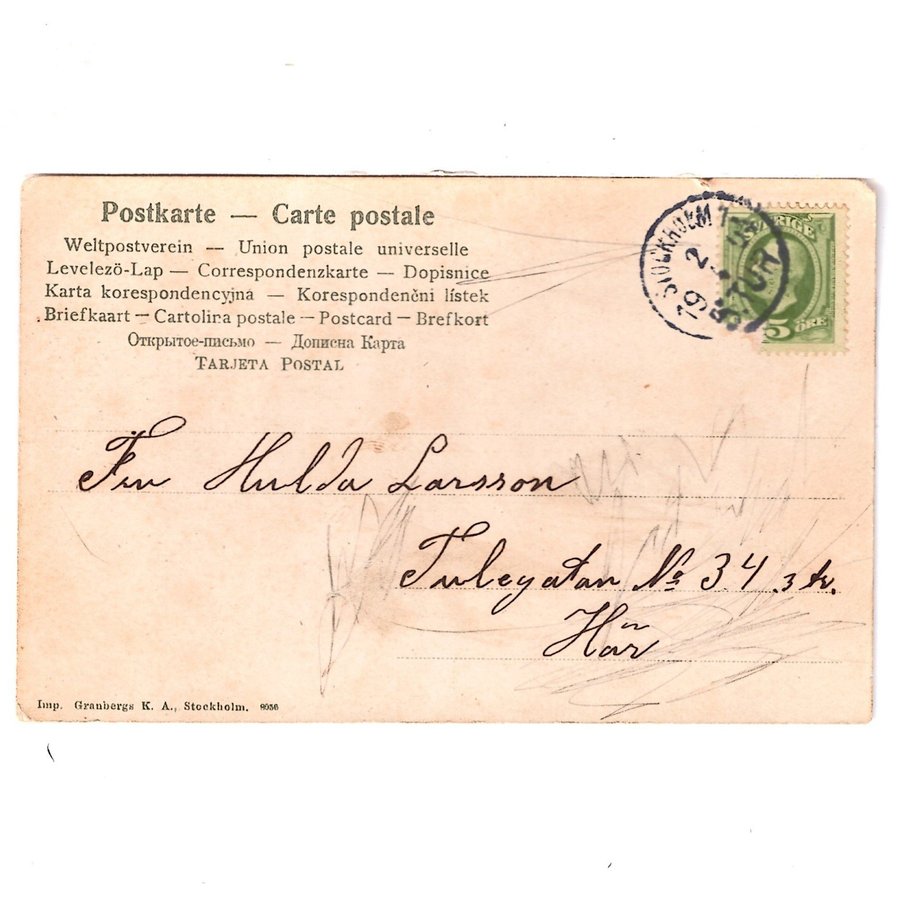 Postkarte — Carte postale
Weltpostverein — Union postale universelle
Levelezö-Lap — Correspondenzkarte — Dopisnice
Karta korespondencyjna — Korespondenčni lístek
Briefkaart — Cartolina postale — Postcard — Brefkort
Открытое-письмо — Дописна Карта
TARJETA POSTAL
STOCKHOLM 1
19 2
TUR
SVERIGE
5 ÖRE
Fru Hulda Larsson
Tulegatan No 34 3 tr.
Här
Imp. Granbergs K. A., Stockholm. 8056